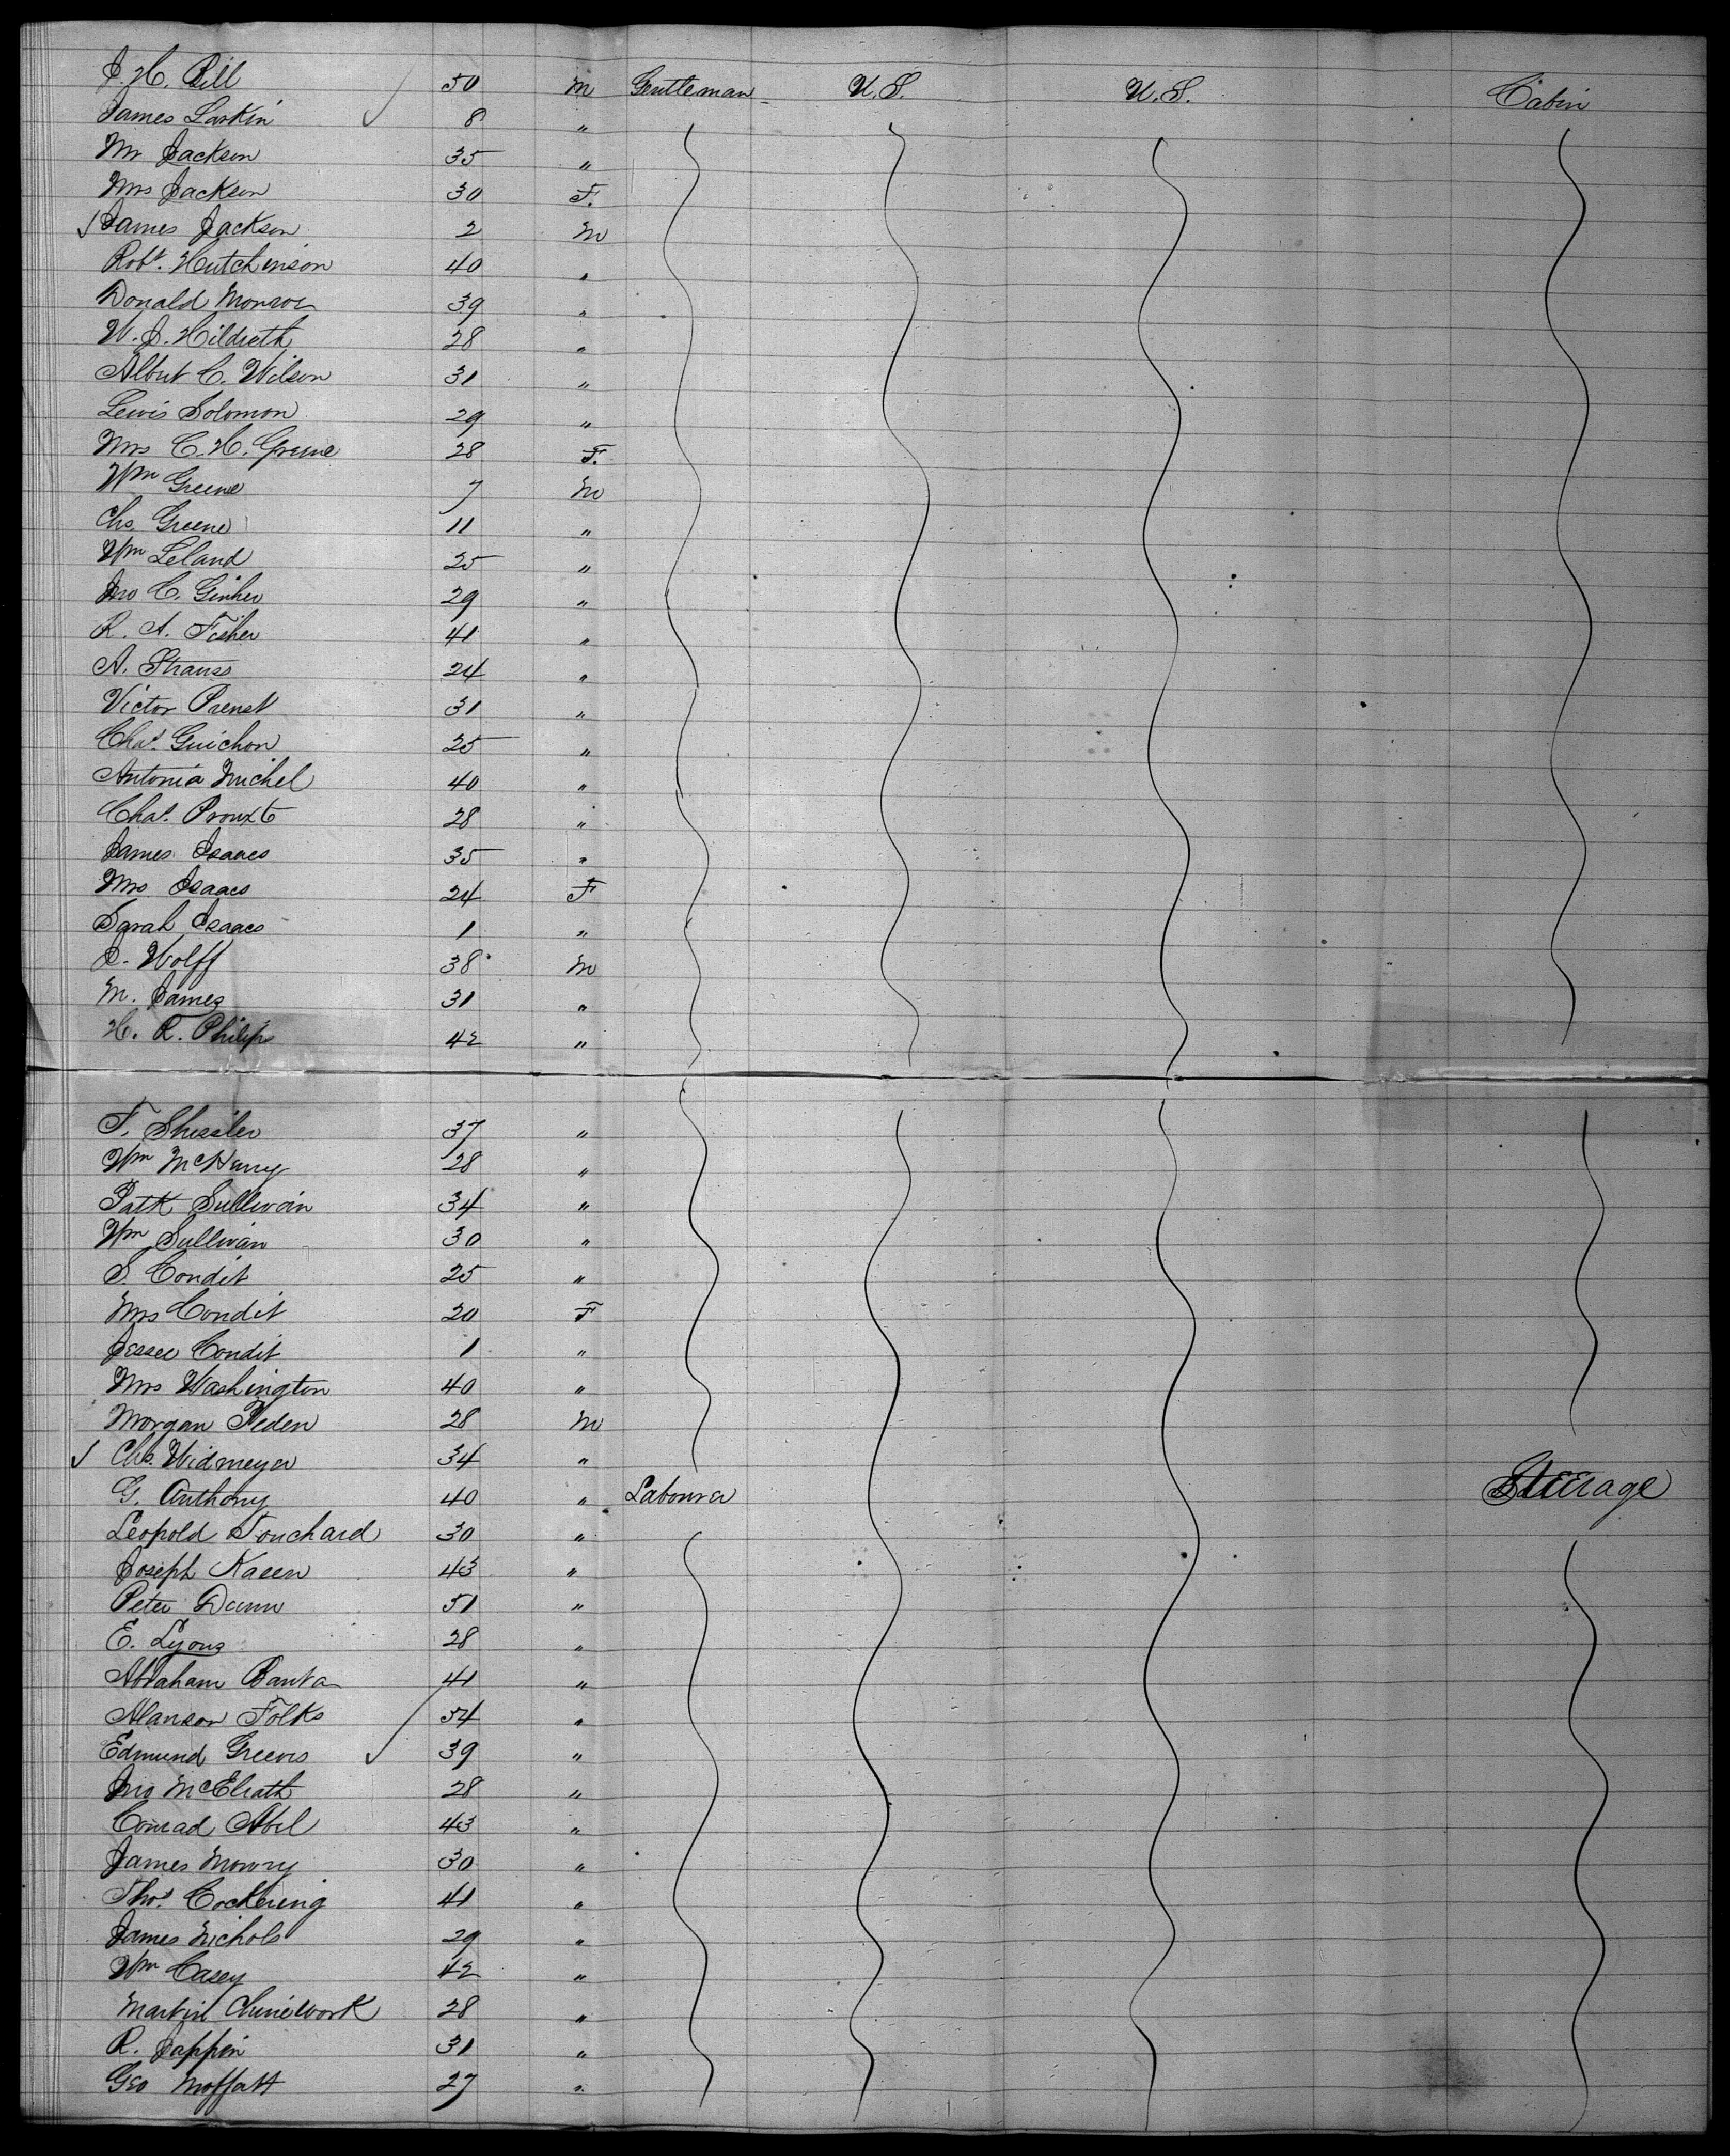 J. H. Bill 50 M Gentleman U.S. U.S. Cabin
James Larkin 8 "
Mr Jackson 35 "
Mrs Jackson 30 F.
James Jackson 2 M
Robt. Hutchinson 40 "
Donald Monroe 39 "
W. J. Hildreth 28 "
Albert C. Wilson 31 "
Lewis Solomon 29 "
Mrs C. H. Greene 28 F.
Wm Greene 7 M
Chs. Greene 11 "
Wm Leland 25 "
Jno C. Ginher 29 "
R. A. Fisher 41 "
A. Strauss 24 "
Victor 31 "
Chas. Guichon 25 "
Antonia Michel 40 "
Chas. 28 "
James Isaacs 35 "
Mrs Isaacs 24 F
Sarah Isaacs 1 "
J. Wolff 38 M
M. James 31 "
H. R. Philip 42 "
F. Shissler 37 "
Wm McHarry 28 "
Patk Sullivan 34 "
Wm Sullivan 30 "
S. Condit 25 "
Mrs Condit 20 F
Jessee Condit 1 "
Mrs Washington 40 "
Morgan Peden 28 M
Chs. Widmeyer 34 "
G. Anthony 40 " Labourer Steerage
Leopold Touchard 30 "
Joseph Kaeen 43 "
Peter Dunn 51 "
E. Lyons 28 "
Abraham Banta 41 "
Alanson Folks 54 "
Edmund Greeves 39 "
Jno McElrath 28 "
Conrad Abel 43 "
James Mowry 30 "
Thos. Cockering 41 "
James Nichols 29 "
Wm Casey 42 "
Martin 28 "
R. Jappin 31 "
Geo Moffatt 27 "